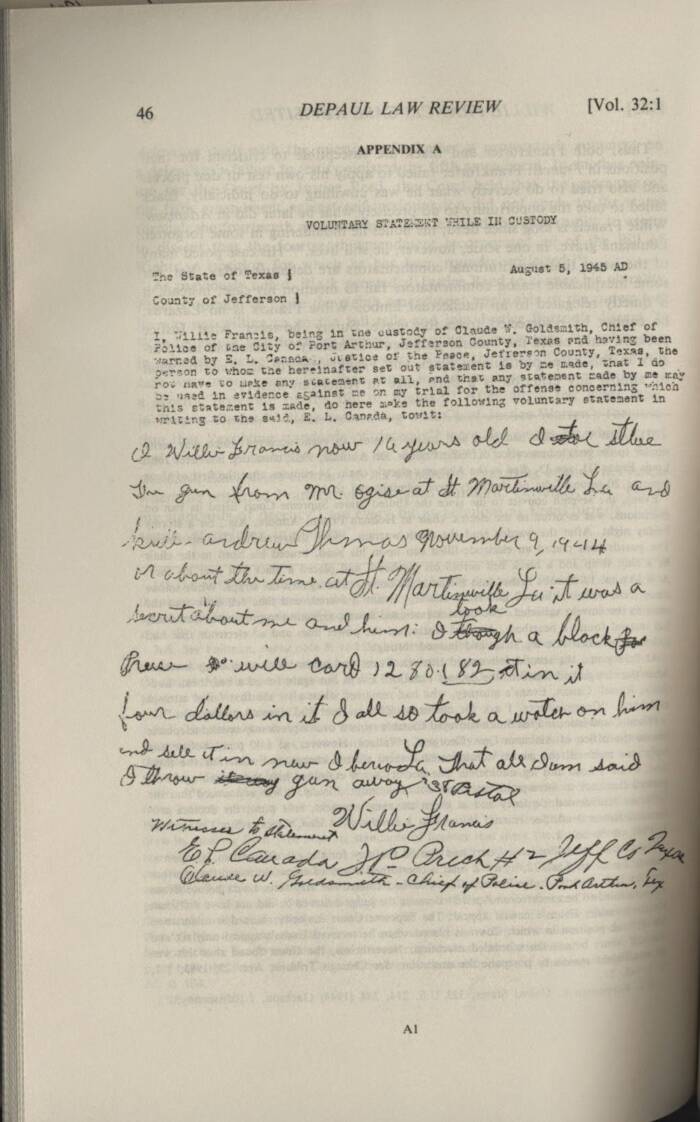 46 DEPAUL LAW REVIEW [Vol. 32:1
APPENDIX A
VOLUNTARY STATEMENT WHILE IN CUSTODY
The State of Texas August 5, 1945 AD
County of Jefferson
I, Willie Francis, being in the custody of Claude W. Goldsmith, Chief of
Police of the City of Port Arthur, Jefferson County, Texas and having been
warned by E. L. Canada, Justice of the Peace, Jefferson County, Texas, the
person to whom the hereinafter set out statement is by me made, that I do
not have to make any statement at all, and that any statement made by me may
be used in evidence against me on my trial for the offense concerning which
this statement is made, do here make the following voluntary statement in
writing to the said, E. L. Canada, towit:
I Willie Francis now 16 years old I
the gun from Mr. ogise at St Martinville La and
kill andrew Thomas November 9, 1944
or about the time at St. Martinville La it was a
secret about me and him. I took a black
card 1280182 in it
four dollars in it I all so took a watch on him
and sell it in new Iberia La That all I am said
I throw gun away
Willie Francis
Witnesses to statement
E L Canada J P Prect #2 Jeff Co Texas
Claude W. Goldsmith - Chief of Police. Port Arthur, Tex
A1